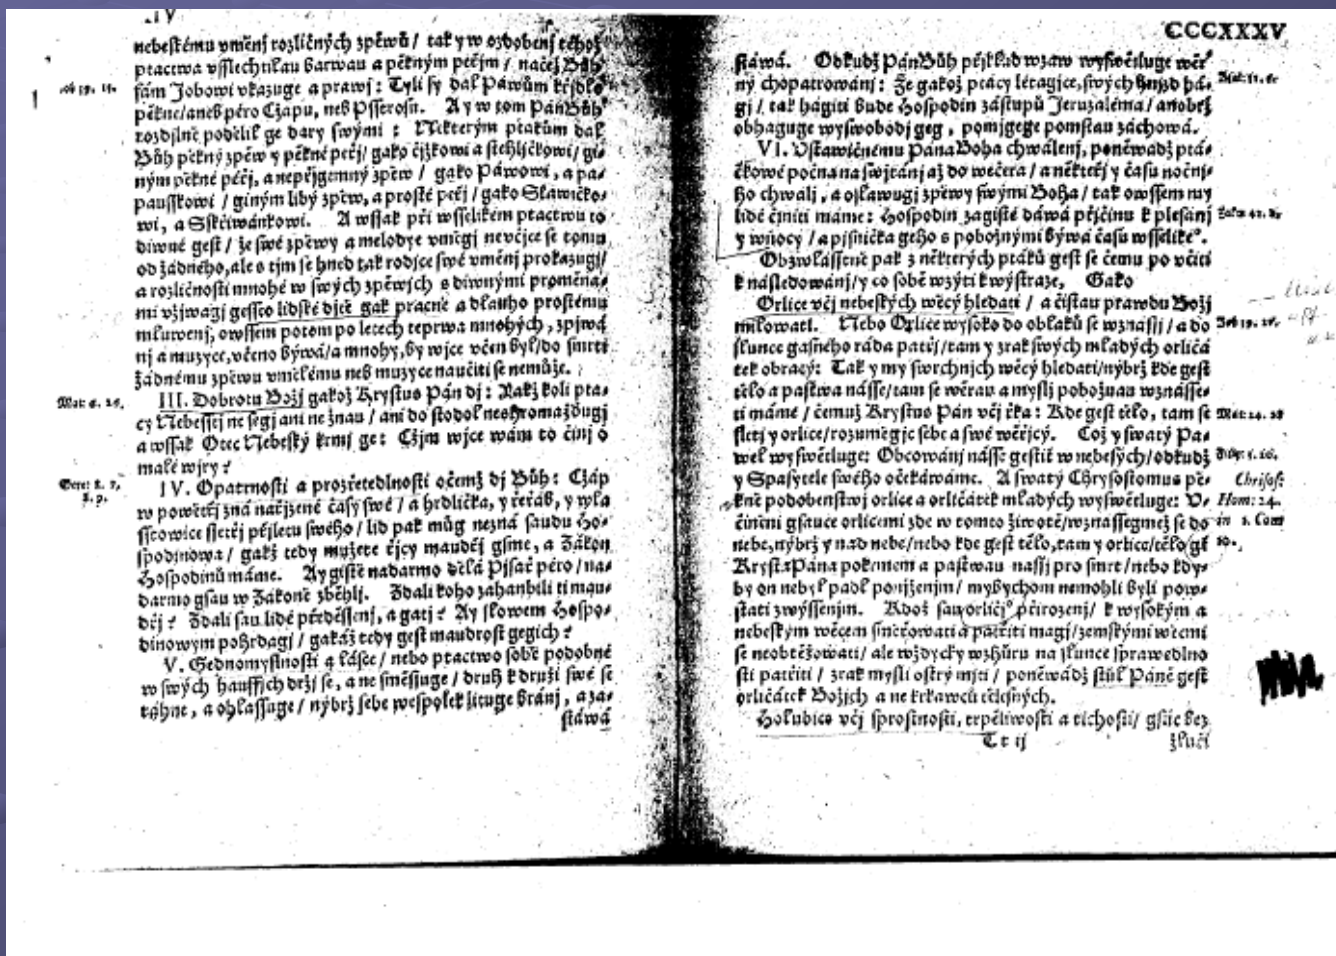 nebeſkému vměnj rozličných zpěwů / tak y w ozdobenj téhož
ptactwa vſſlechtilau barwau a pěkným peřjm / načež Bůh
ſám Jobowi vkazuge a prawj: Tyli ſy dal Páwům křjdlo
pěkne/aneb péro Cžápu, neb Pſſtroſu. A y w tom Pán Bůh
rozdjlně podělil ge dary ſwými: Některým ptakům dal
Bůh pěkný zpěw y pěkné peřj/ gako čjžkowi a ſtehljčkowi/ gi-
ným pěkné peřj, a nepřjgemný zpěw / gako Páwowi, a pa-
pauſſkowi / giným libý zpěw, a proſté peřj / gako Slawičko-
wi, a Sſkřiwánkowi. A wſſak při wſſelikém ptactwu to
diwné geſt / že ſwé zpěwy a melodye vměgj nevčjce ſe tomu
od žádného, ale s tjm ſe hned tak rodjce ſwé vměnj prokazugj/
a rozličnoſti mnohé w ſwých zpěwjch s diwnými proměna-
mi vžjwagj geſſto lidſké djtě gak pracně a dlauho proſtému
mluwenj, owſſem potom po letech teprwa mnohých, zpjwá-
nj a muzyce, včeno býwá/ a mnohý, by wjce včen byl/ do ſmrti
žádnému zpěwu vmělému neb muzyce naučiti ſe nemůže.
Mat: 6. 26. III. Dobrotu Božj gakož Kryſtus Pán dj: Pakž koli pta-
cy Nebeſſtj ne ſegj ani ne žnau / ani do ſtodol neſhromažďugj
a wſſak Otec Nebeſký krmj ge: Cžjm wjce wám to činj ó
malé wjry?
Gere: 8. 7. IV. Opatrnoſti a prozřetedlnoſti o čemž dj Bůh: Cžáp
8. 9. w powětřj zná nařjzené časy ſwé / a hrdlička, y řeřáb, y wla-
ſſtowice ſſetřj přjletu ſwého / lid pak můg nezná ſaudu Ho-
ſpodinowa / gakž tedy můžete řjcy maudřj gſme, a Zákon
Hoſpodinů máme. Ay giſtě nadarmo dělá Pjſař péro / na-
darmo gſau w Zákoně zběhlj. Zdali koho zahanbili ti mau-
dřj? Zdali ſau lidé předěſſeni, a gati? Ay ſlowem Hoſpo-
dinowým pohrdagj / gakáž tedy geſt maudroſt gegich?
V. Gednomyſlnoſti a láſce / nebo ptactwo ſobě podobné
w ſwých hauffjch držj ſe, a ne ſměſſuge / druh k druži ſwé ſe
táhne, a ohlaſſuge / nýbrž ſebe weſpolek lituge bránj, a za-
ſtáwá
CCCXXXV
ſtáwá. Odkudž Pán Bůh přjklad wzaw wyſwětluge wěr-
ný ch opatrowánj: Že gakož ptácy létagjce, ſwých hnjzd há-
gj / tak hágiti bude Hoſpodin záſtupů Jeruzaléma / anobrž
obhaguge wyſwobodj geg, pomjgege pomſtau záchowá.
VI. Vſtawičnému Pána Boha chwálenj, poněwádž ptá-
čkowé počna na ſwjtánj až do wečera / a někteřj y času nočnj-
ho chwalj, a oſlawugj zpěwy ſwými Boha / tak owſſem my
lidé činiti máme: Hoſpodin zagiſté dáwá přjčinu k pleſánj
y w nocy / a pjſnička geho s pobožnými býwá času wſſeliké°.
Obzwláſſtně pak z některých ptáků geſt ſe čemu po včiti
k náſledowánj/ y co ſobě wzýti k weyſtraze, Gako
Orlice včj nebeſkých wěcý hledati / a čiſtau prawdu Božj
milowati. Nebo Orlice wyſoko do oblaků ſe wznáſſj / a do
ſlunce gaſného ráda patřj/ tam y zrak ſwých mladých orličá-
tek obracý: Tak y my ſwrchnjch wěcý hledati/ nýbrž kde geſt
tělo a paſtwa náſſe/ tam ſe wěrau a myſlj pobožnau wznáſſe-
ti máme / čemuž Kryſtus Pán včj řka: Kde geſt tělo, tam ſe Mat: 24. 28
ſletj y orlice/ rozuměg je ſebe a ſwé wěřjcý. Což y ſwatý Pa-
wel wyſwětluge: Obcowánj náſſe geſtiť w nebeſých/ odkudž
y Spaſytele ſwého očekáwáme. A ſwatý Chryſoſtomus pě- Chriſoſ:
kně podobenſtwj orlice a orličátek mladých wyſwětluge: V- Hom: 24.
činěni gſauce orlicemi zde w tomto žiwotě/ wznáſſegmež ſe do in 1. Cor
nebe, nýbrž y nad nebe/ nebo kde geſt tělo, tam y orlice/ tělo gſt 10.
Kryſta Pána pokrmem a paſtwau naſſj pro ſmrt / nebo kdy-
by on nebyl padl ponjženjm / mybychom nemohli byli pow-
ſtati zwýſſenjm. Kdož ſau orličj přirozenj/ k wyſokým a
nebeſkým wěcem ſměřowati a patřiti magj/ zemſkými wěcmi
ſe neobtěžowati / ale wždycky wzhůru na ſlunce ſprawedlno
ſti patřiti / zrak myſli oſtrý mjti / poněwádž ſtůl Páně geſt
orličátek Božjch a ne krkawců tělesných.
Holubice včj ſproſtnoſti, trpěliwoſti a tichoſti/ gſúc bez
Tt ij žluči